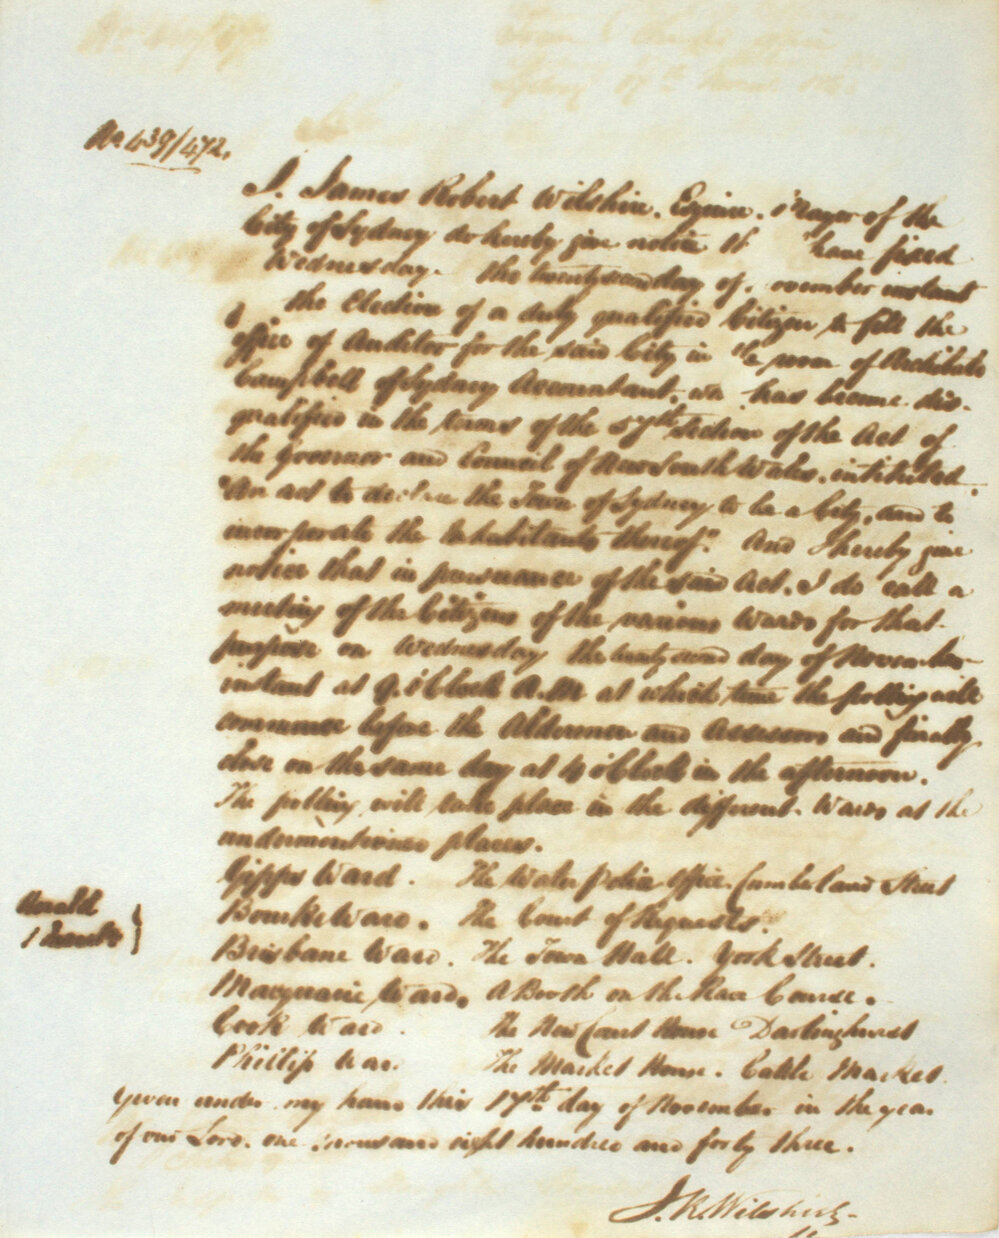 No 439/472.
I. James Robert Wilshire. Esquire. Mayor of the
City of Sydney do hereby give notice that I have fixed
Wednesday. the twenty second day of November instant
for the Election of a duly qualified Citizen to fill the
Office of Auditor for the said City in the room of Archibald
Campbell of Sydney Accountant, who has become dis-
qualified in the terms of the 57th section of the Act of
the Governor and Council of New South Wales, intituled.
"An act to declare the Town of Sydney to be a City, and to
incorporate the Inhabitants thereof." And I hereby give
notice that in pursuance of the said Act, I do call a
meeting of the Citizens of the various Wards for that
purpose on Wednesday the twenty second day of November
instant at 9. o'Clock A.M at which time the polling will
commence before the Aldermen and Assessors and finally
close on the same day at 4 o'Clock in the afternoon.
The polling will take place in the different Wards at the
undermentioned places.
Gipps Ward. The Water Police Office Cumberland Street
Bourke Ward. The Court of Requests.
Herald
1 insert }
Brisbane Ward. The Town Hall. York Street.
Macquarie Ward. A Booth on the Race Course.
Cook Ward. The New Court House Darlinghurst
Phillip Ward. The Market House. Cattle Market.
Given under my hand this 17th day of November in the year
of our Lord. one thousand eight hundred and forty three.
J. R. Wilshire